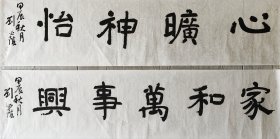 心曠神怡
甲辰秋月
劉
家和萬事興
甲辰秋月
劉